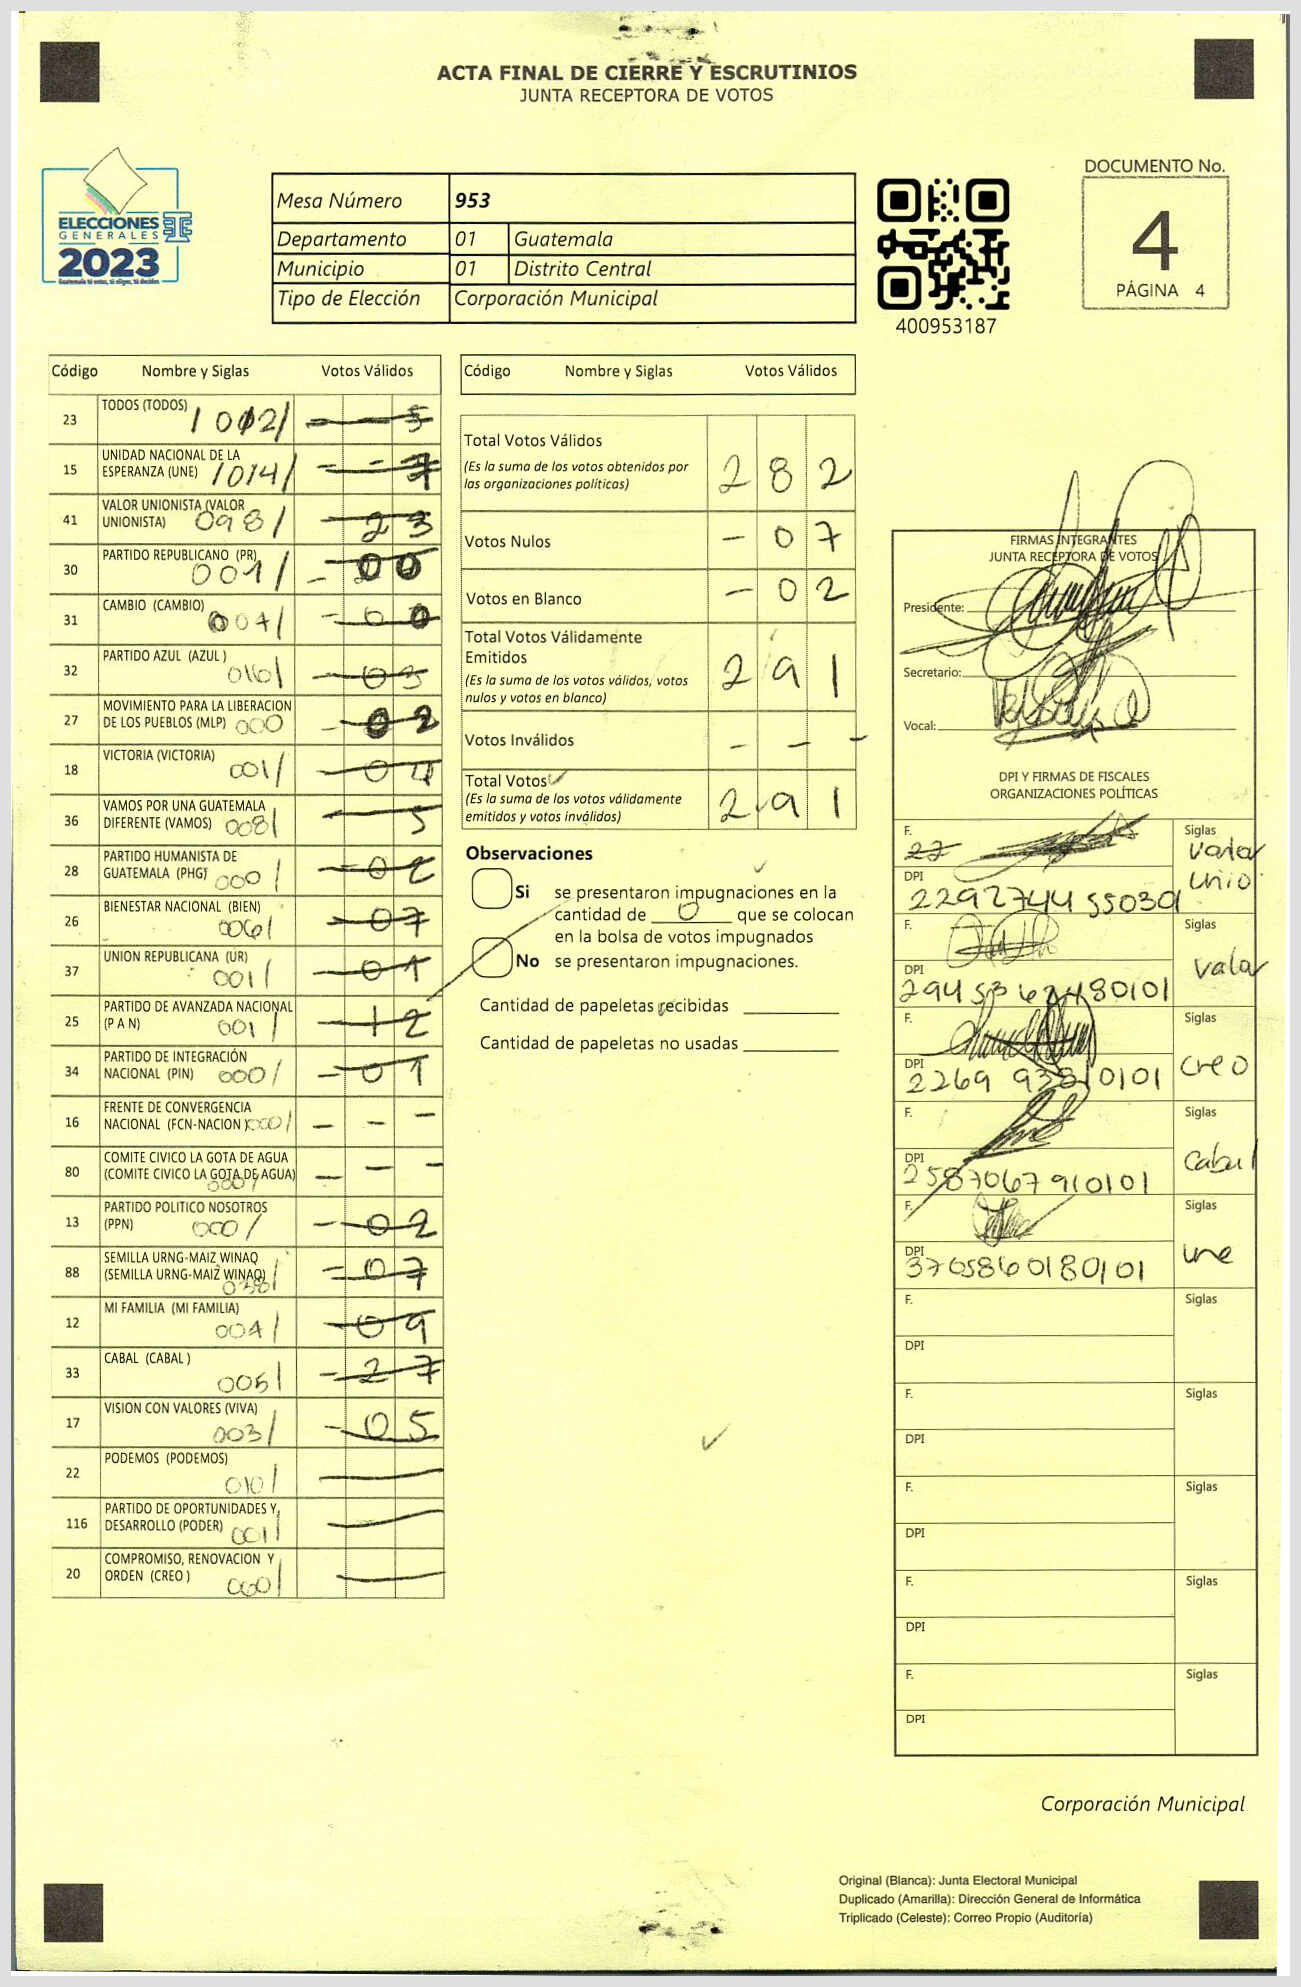 ACTA FINAL DE CIERRE Y ESCRUTINIOS
JUNTA RECEPTORA DE VOTOS
ELECCIONES
GENERALES
2023
Mesa Número 953
Departamento 01 Guatemala
Municipio 01 Distrito Central
Tipo de Elección Corporación Municipal
400953187
DOCUMENTO No.
4
PÁGINA 4
Código Nombre y Siglas Votos Válidos
23 TODOS (TODOS) 1002/ 5
15 UNIDAD NACIONAL DE LA
ESPERANZA (UNE) 1014/ - - 7
41 VALOR UNIONISTA (VALOR
UNIONISTA) 098/ 23
30 PARTIDO REPUBLICANO (PR)
001/ - 00
31 CAMBIO (CAMBIO)
007/ - 00
32 PARTIDO AZUL (AZUL)
016/ 03
27 MOVIMIENTO PARA LA LIBERACION
DE LOS PUEBLOS (MLP) 000 - 02
18 VICTORIA (VICTORIA)
001/ 04
36 VAMOS POR UNA GUATEMALA
DIFERENTE (VAMOS) 008/ 5
28 PARTIDO HUMANISTA DE
GUATEMALA (PHG) 000/ 02
26 BIENESTAR NACIONAL (BIEN)
006/ 07
37 UNION REPUBLICANA (UR)
001/ 01
25 PARTIDO DE AVANZADA NACIONAL
(P A N) 001/ 12
34 PARTIDO DE INTEGRACIÓN
NACIONAL (PIN) 000/ - 01
16 FRENTE DE CONVERGENCIA
NACIONAL (FCN-NACION) 000/ - - -
80 COMITE CIVICO LA GOTA DE AGUA
(COMITE CIVICO LA GOTA DE AGUA) - - -
000/
13 PARTIDO POLITICO NOSOTROS
(PPN) 000/ - 02
88 SEMILLA URNG-MAIZ WINAQ
(SEMILLA URNG-MAIZ WINAQ) - 07
038/
12 MI FAMILIA (MI FAMILIA)
004/ 09
33 CABAL (CABAL)
005/ - 27
17 VISION CON VALORES (VIVA)
003/ - 05
22 PODEMOS (PODEMOS)
010/
116 PARTIDO DE OPORTUNIDADES Y
DESARROLLO (PODER) 001/
20 COMPROMISO, RENOVACION Y
ORDEN (CREO) 000/
Código Nombre y Siglas Votos Válidos
Total Votos Válidos
(Es la suma de los votos obtenidos por
las organizaciones políticas) 282
Votos Nulos - 07
Votos en Blanco - 02
Total Votos Válidamente
Emitidos 291
(Es la suma de los votos válidos, votos
nulos y votos en blanco)
Votos Inválidos - - -
Total Votos
(Es la suma de los votos válidamente
emitidos y votos inválidos) 291
Observaciones
Si se presentaron impugnaciones en la
cantidad de 0 que se colocan
en la bolsa de votos impugnados
No se presentaron impugnaciones.
Cantidad de papeletas recibidas
Cantidad de papeletas no usadas
FIRMAS INTEGRANTES
JUNTA RECEPTORA DE VOTOS
Presidente:
Secretario:
Vocal:
DPI Y FIRMAS DE FISCALES
ORGANIZACIONES POLÍTICAS
F. 27 Siglas
Valor
Unio
DPI 2292744550301
F. Siglas
Valor
DPI
F. Siglas
Creo
DPI 2269 93810101
F. Siglas
Cabal
DPI 2587067910101
F. Siglas
Une
DPI 3705860180101
F. Siglas
DPI
F. Siglas
DPI
F. Siglas
DPI
F. Siglas
DPI
F. Siglas
DPI
Corporación Municipal
Original (Blanca): Junta Electoral Municipal
Duplicado (Amarilla): Dirección General de Informática
Triplicado (Celeste): Correo Propio (Auditoría)